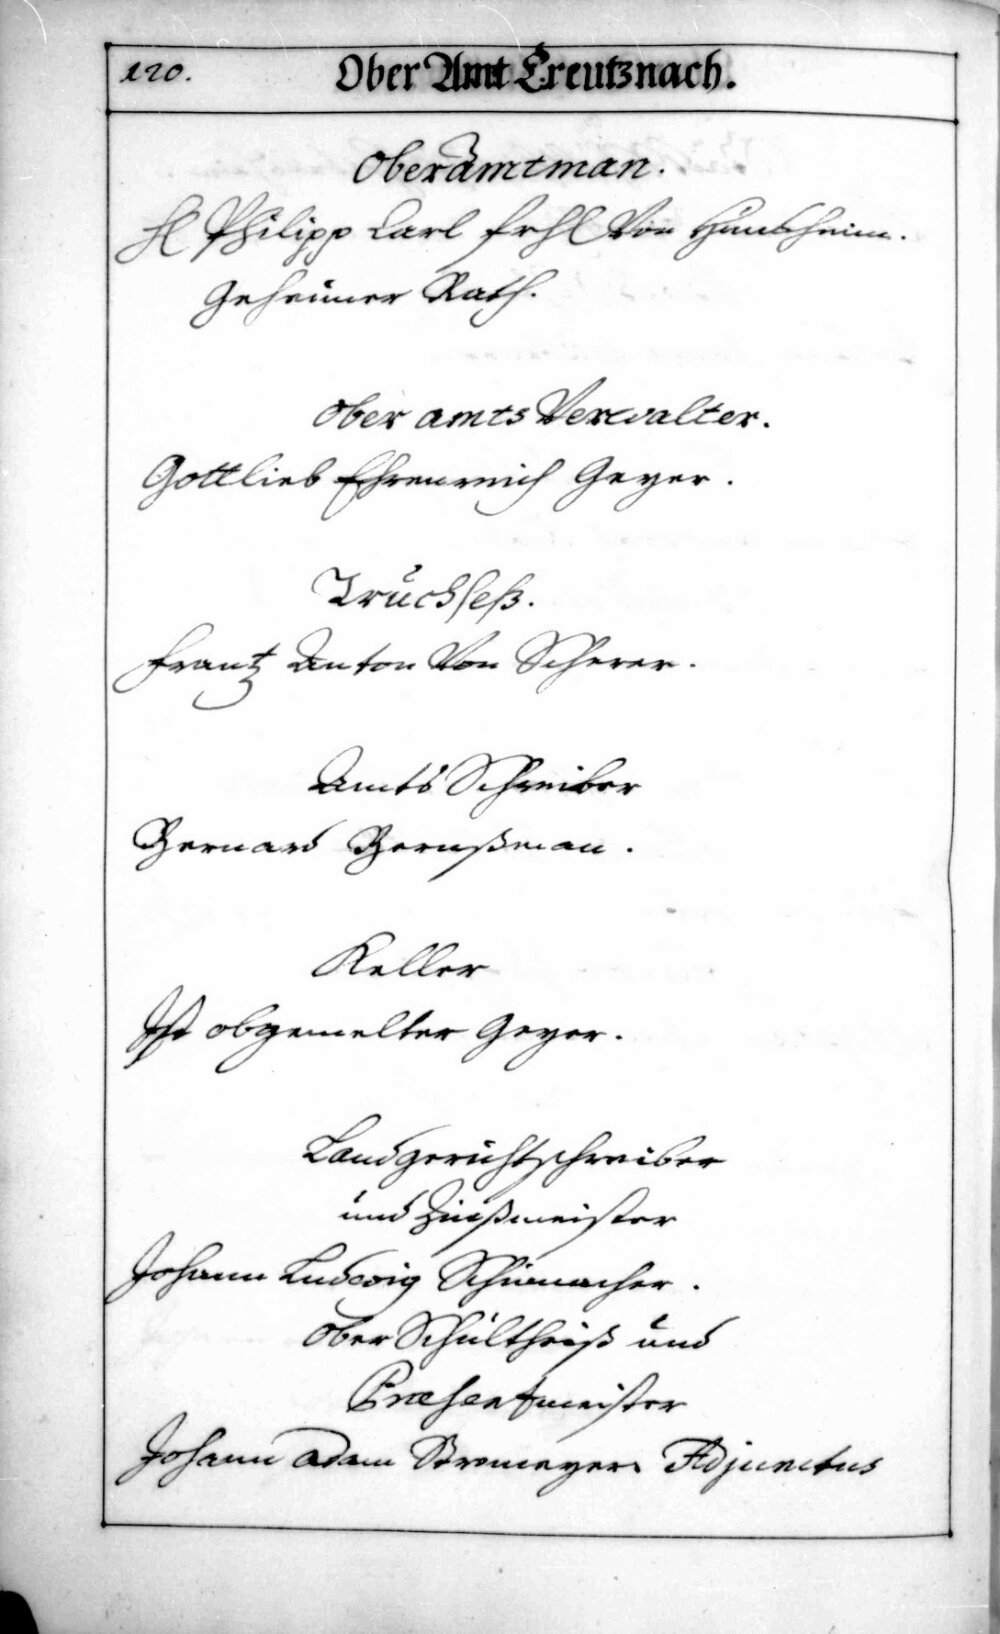 120.
Ober Amt Creutznach.
Oberamtman.
H Philipp Carl frhl Von Hundheim.
Geheimer Rath.
Ober amts Verwalter.
Gottlieb Ehrenreich Geyer.
Truchseß.
Frantz Anton Von Scherer.
Amts Schreiber
Bernard Bernßman.
Keller
Ist obgemelter Geyer.
Landgerichtschreiber
und Zinßmeister
Johann Ludwig Schumacher.
Ober Schultheiß und
Præsentmeister
Johann Adam Adjunctus